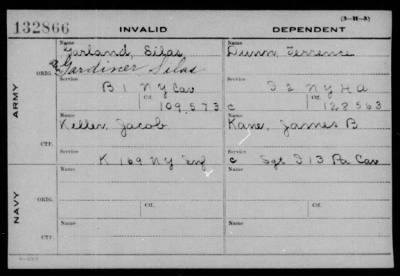 (3—H—3)
132866 INVALID DEPENDENT
Name Name
Garland, Silas Dunn, Terrence
Gardiner Silas
ORIG.
Service Service
B 1 N Y Cav I 2 N Y H A
Ctf. Ctf.
109,573 c 128,563
ARMY
Name Name
Keller, Jacob Kane, James B
CTF.
Service Service
K 169 N Y Inf c Sgt I 13 Pa Cav
Name Name
ORIG.
NAVY
Ctf. Ctf.
Name Name
CTF.